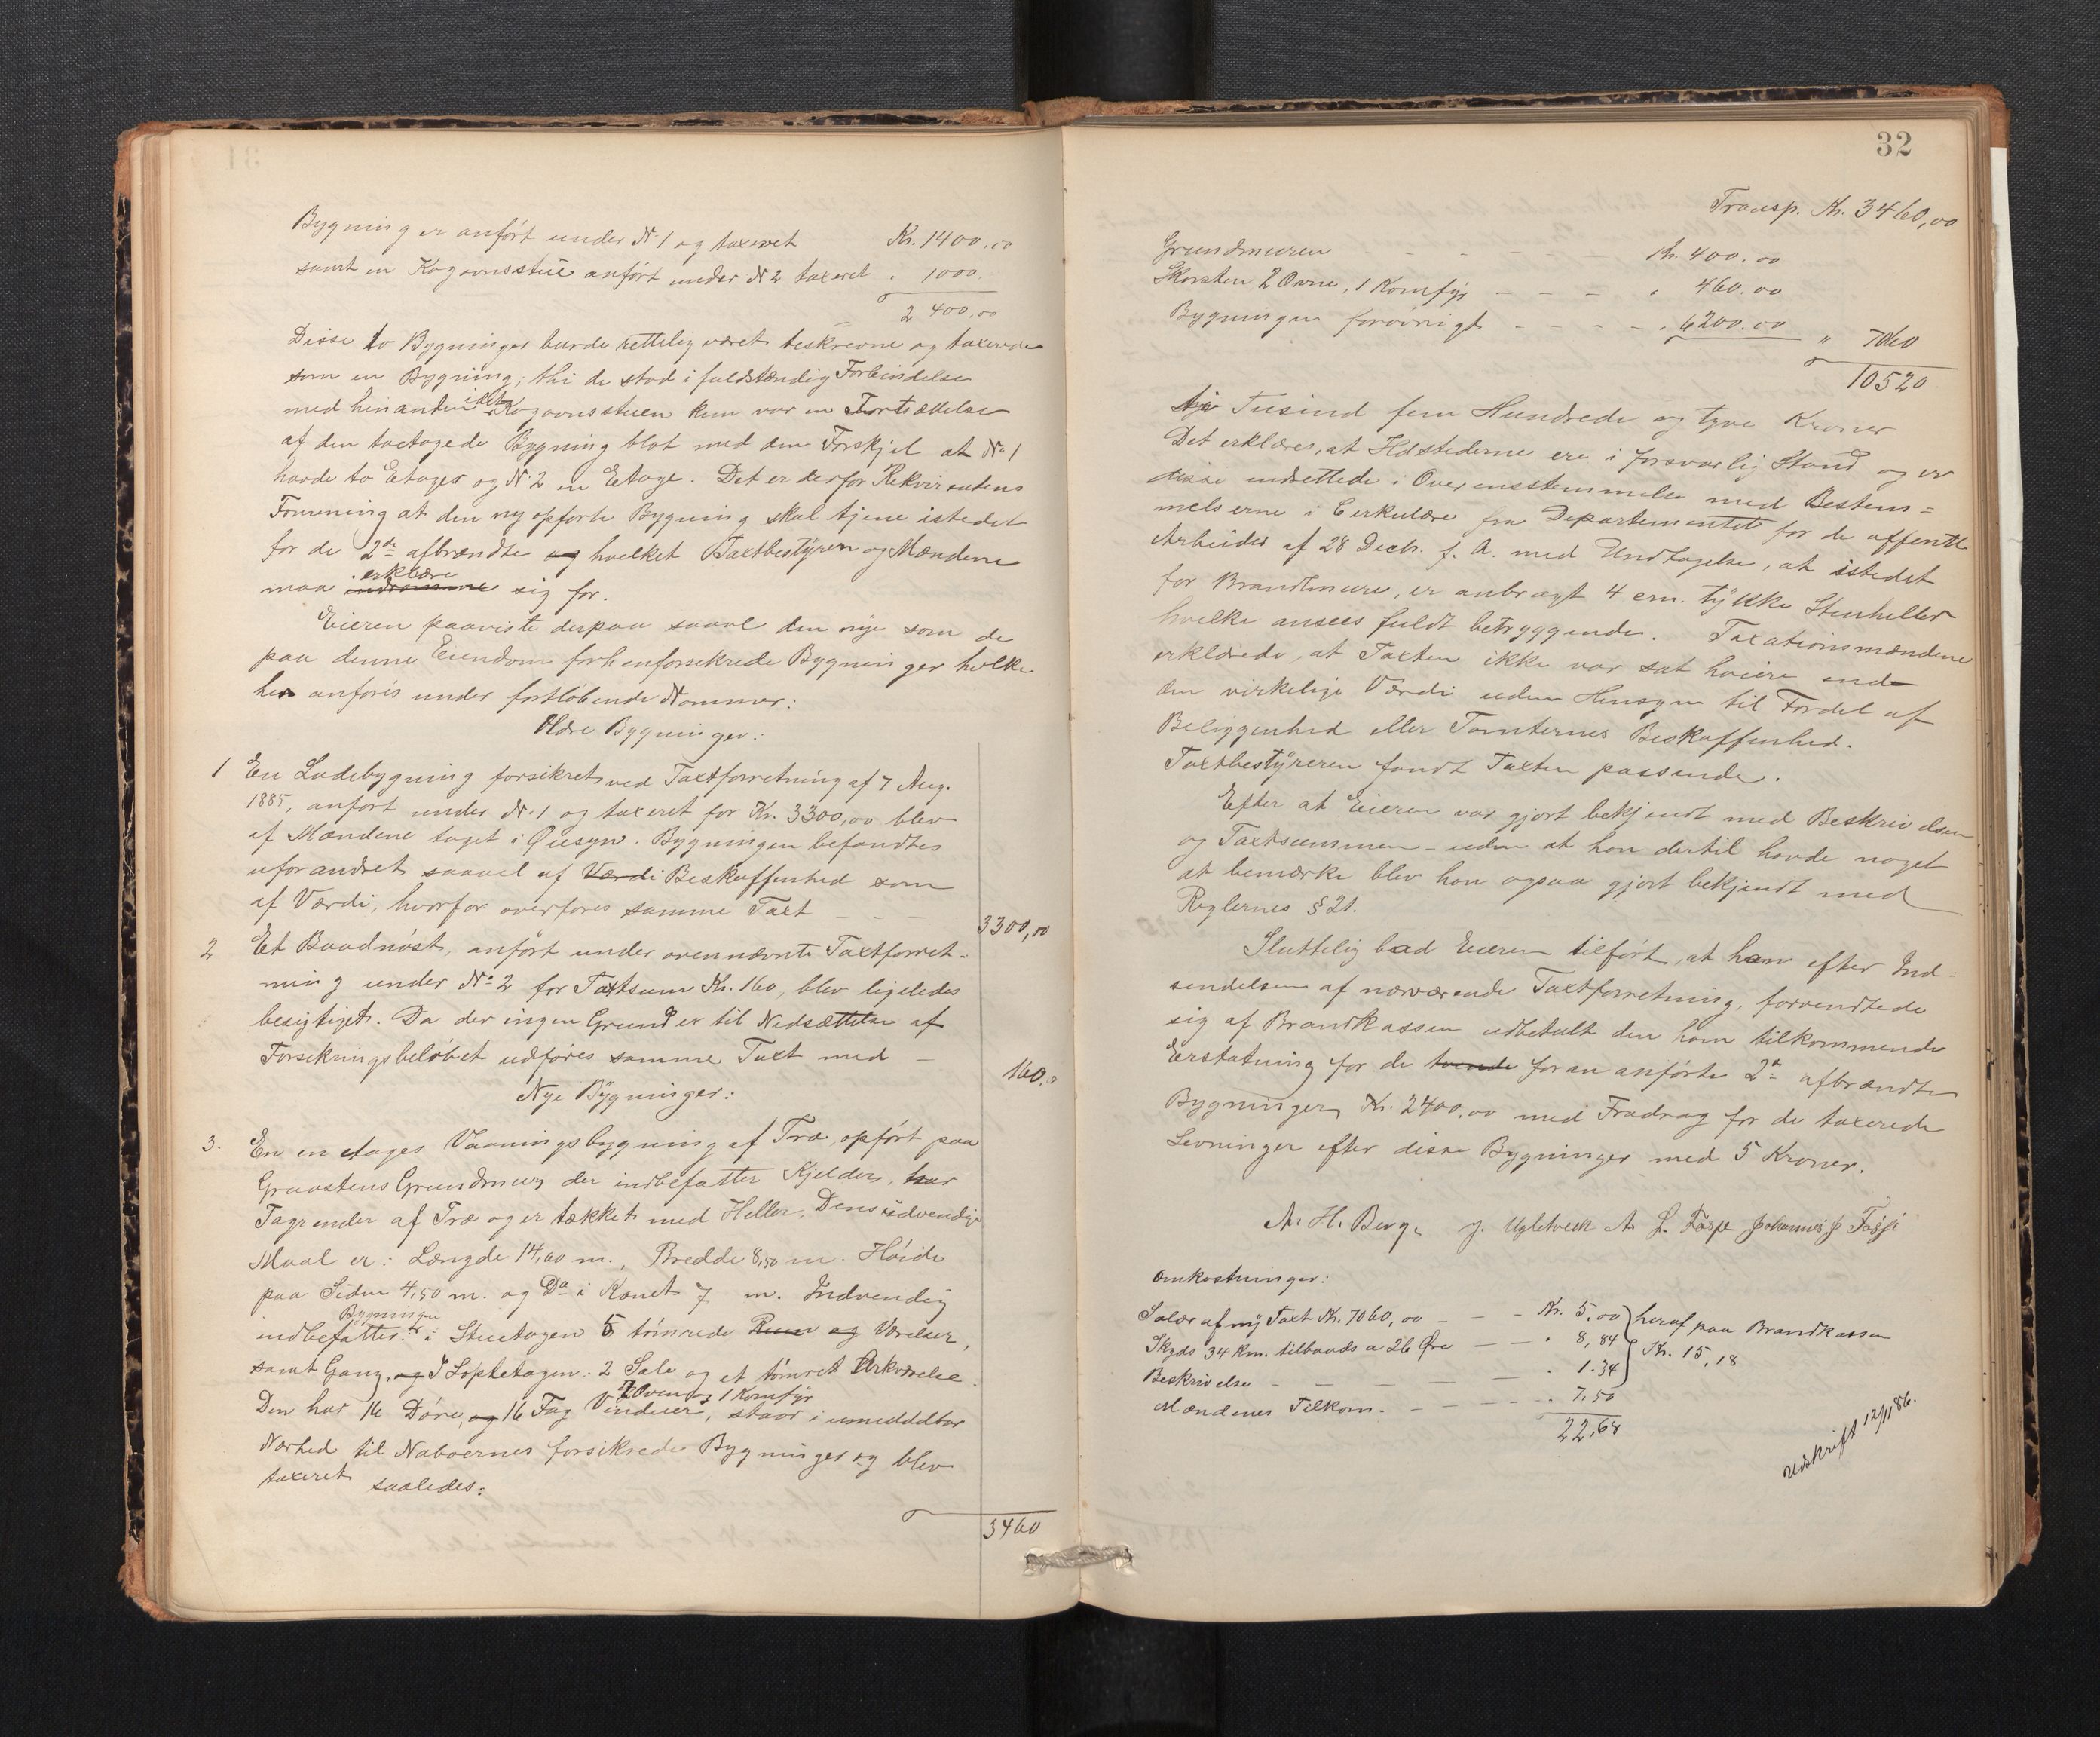 Bygning er anført under N. 1 og taxeret Kr. 1400.00
samt en Rogovnsstue anført under N. 2 taxeret " 1000.
2 400,00
Disse to Bygninger burde rettelig været beskrevne og taxerede
som en Bygning; thi de stod i fuldstændig Forbindelse
med hinanden idet Rogovnsstuen kun var en Fortsættelse
af den toetagede Bygning blot med den Forskjel at No 1
havde to Etager og N. 2 en Etage. Det er derfor Rekvirentens
Formening at den nyopførte Bygning skal tjene istedet
for de 2de afbrændte og hvilket Taxtbestyreren og Mændene
maa indrømme erklære sig for.
Eieren paaviste derpaa saavel den nye som de
paa denne Eiendom forhenforsikrede Bygninger hvilke
her anføres under fortløbende Nommer:
Ældre Bygninger:
1 En Ladebygning forsikret ved Taxtforretning af 7 Aug.
1885, anført under N. 1 og taxeret for Kr. 3300,00 blev
af Mændene taget i Øiesyn. Bygningen befandtes
uforandret saavel af Værdi Beskaffenhed som
af Værdi, hvorfor overføres samme Taxt — — — 3300,00
2 Et Baadnøst, anført under ovennævnte Taxtforret-
ning under No 2 for Taxtsum Kr. 160, blev ligeledes
besigtiget. Da der ingen Grund er til Nedsættelse af
Forsikringsbeløbet udføres samme Taxt med — 160.00
Nye Bygninger:
3. En en etages Vaaningsbygning af Træ, opført paa
Graastens Grundmur, der indbefatter Kjelder, har
Tagrender af Træ og er tækket med Heller. Dens udvendige
Maal er: Længde 14,60 m., Bredde 8,50 m. Høide
paa Siden 4,50 m. og Do i Rønet 7 m. Indvendig
indbefatter Bygningen i Stuetagen 5 tømrede Rum og Værelser,
samt Gang, og I Loftetagen: 2 Sale og et tømret Arkværelse.
Den har 16 Døre, og 16 Fag Vinduer, 2 Ovne og 1 Komfyr, staar i umiddelbar
Nærhed til Naboernes forsikrede Bygninger og blev
taxeret saaledes:
3460
32
Transp. Kr. 3460,00
Grundmuren - - - - - - Kr. 400.00
Skorsten 2 Ovne, 1 Komfyr — — — " 460.00
Bygningen forøvrigt - - - - " 6200.00 " 7060
10520
ti Tusind fem Hundrede og tyve Kroner
Det erklæres, at Ildstederne ere i forsvarlig Stand og er
disse indrettede i Overensstemmelse med Bestem=
melserne i Cirkulære fra Departementet for de offentl.
Arbeider af 28 Decbr. f. A. med Undtagelse, at istedet
for Brandmure, er anbragt 4 cm. tykke Stenheller
hvilke ansees fuldt betryggende. Taxationsmændene
erklærede, at Taxten ikke var sat høiere end
den virkelige Værdi uden Hensyn til Fordel af
Beliggenhed eller Tomternes Beskaffenhed.
Taxtbestyreren fandt Taxten passende.
Efter at Eieren var gjort bekjendt med Beskrivelsen
og Taxtsummen — uden at han dertil havde noget
at bemærke blev han ogsaa gjort bekjendt med
Reglernes § 21.
Sluttelig bad Eieren tilført, at han efter Ind=
sendelsen af nærværende Taxtforretning, forventede
sig af Brandkassen udbetalt den ham tilkommende
Erstatning for de tvende foran anførte 2de afbrændte
Bygninger, Kr. 2400,00 med Fradrag for de taxerede
Levninger efter disse Bygninger med 5 Kroner.
A. H. Berg. J. A. L. Fosse Johannes J Fosse
Omkostninger:
Salær af ny Taxt Kr. 7060,00 — — — Kr. 5,00 } heraf paa Brandkassen
Skyds 34 km. tilbaads a 26 Øre — — " 8,84 } Kr. 15,18
Beskrivelse — — — — — " 1.34 }
Mændenes Tilkom. — — — — " 7.50
22,68
Udskrift 12/11 86.